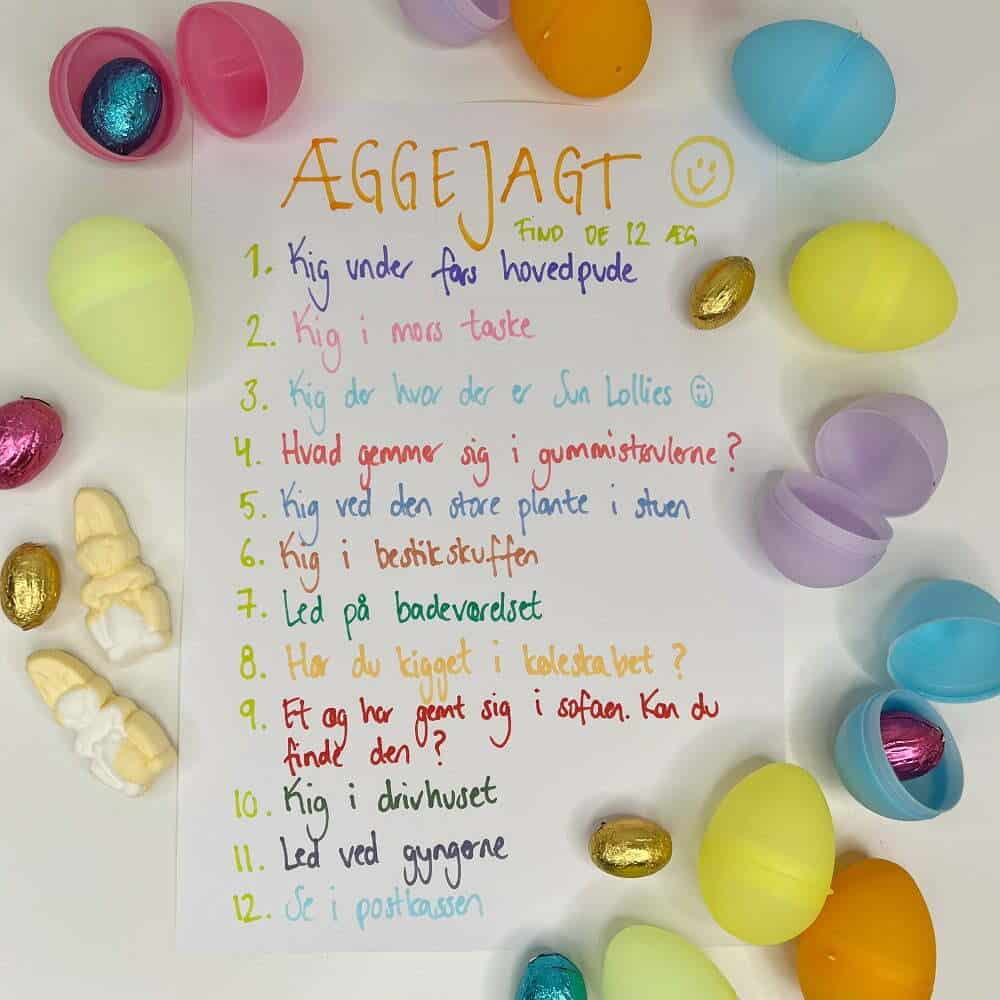 ÆGGEJAGT
FIND DE 12 ÆG
1. Kig under fars hovedpude
2. Kig i mors taske
3. Kig der hvor der er Sun Lollies
4. Hvad gemmer sig i gummistøvlerne?
5. Kig ved den store plante i stuen
6. Kig i bestikskuffen
7. Led på badeværelset
8. Har du kigget i køleskabet?
9. Et æg har gemt sig i sofaen. Kan du
finde den?
10. Kig i drivhuset
11. Led ved gyngerne
12. Se i postkassen